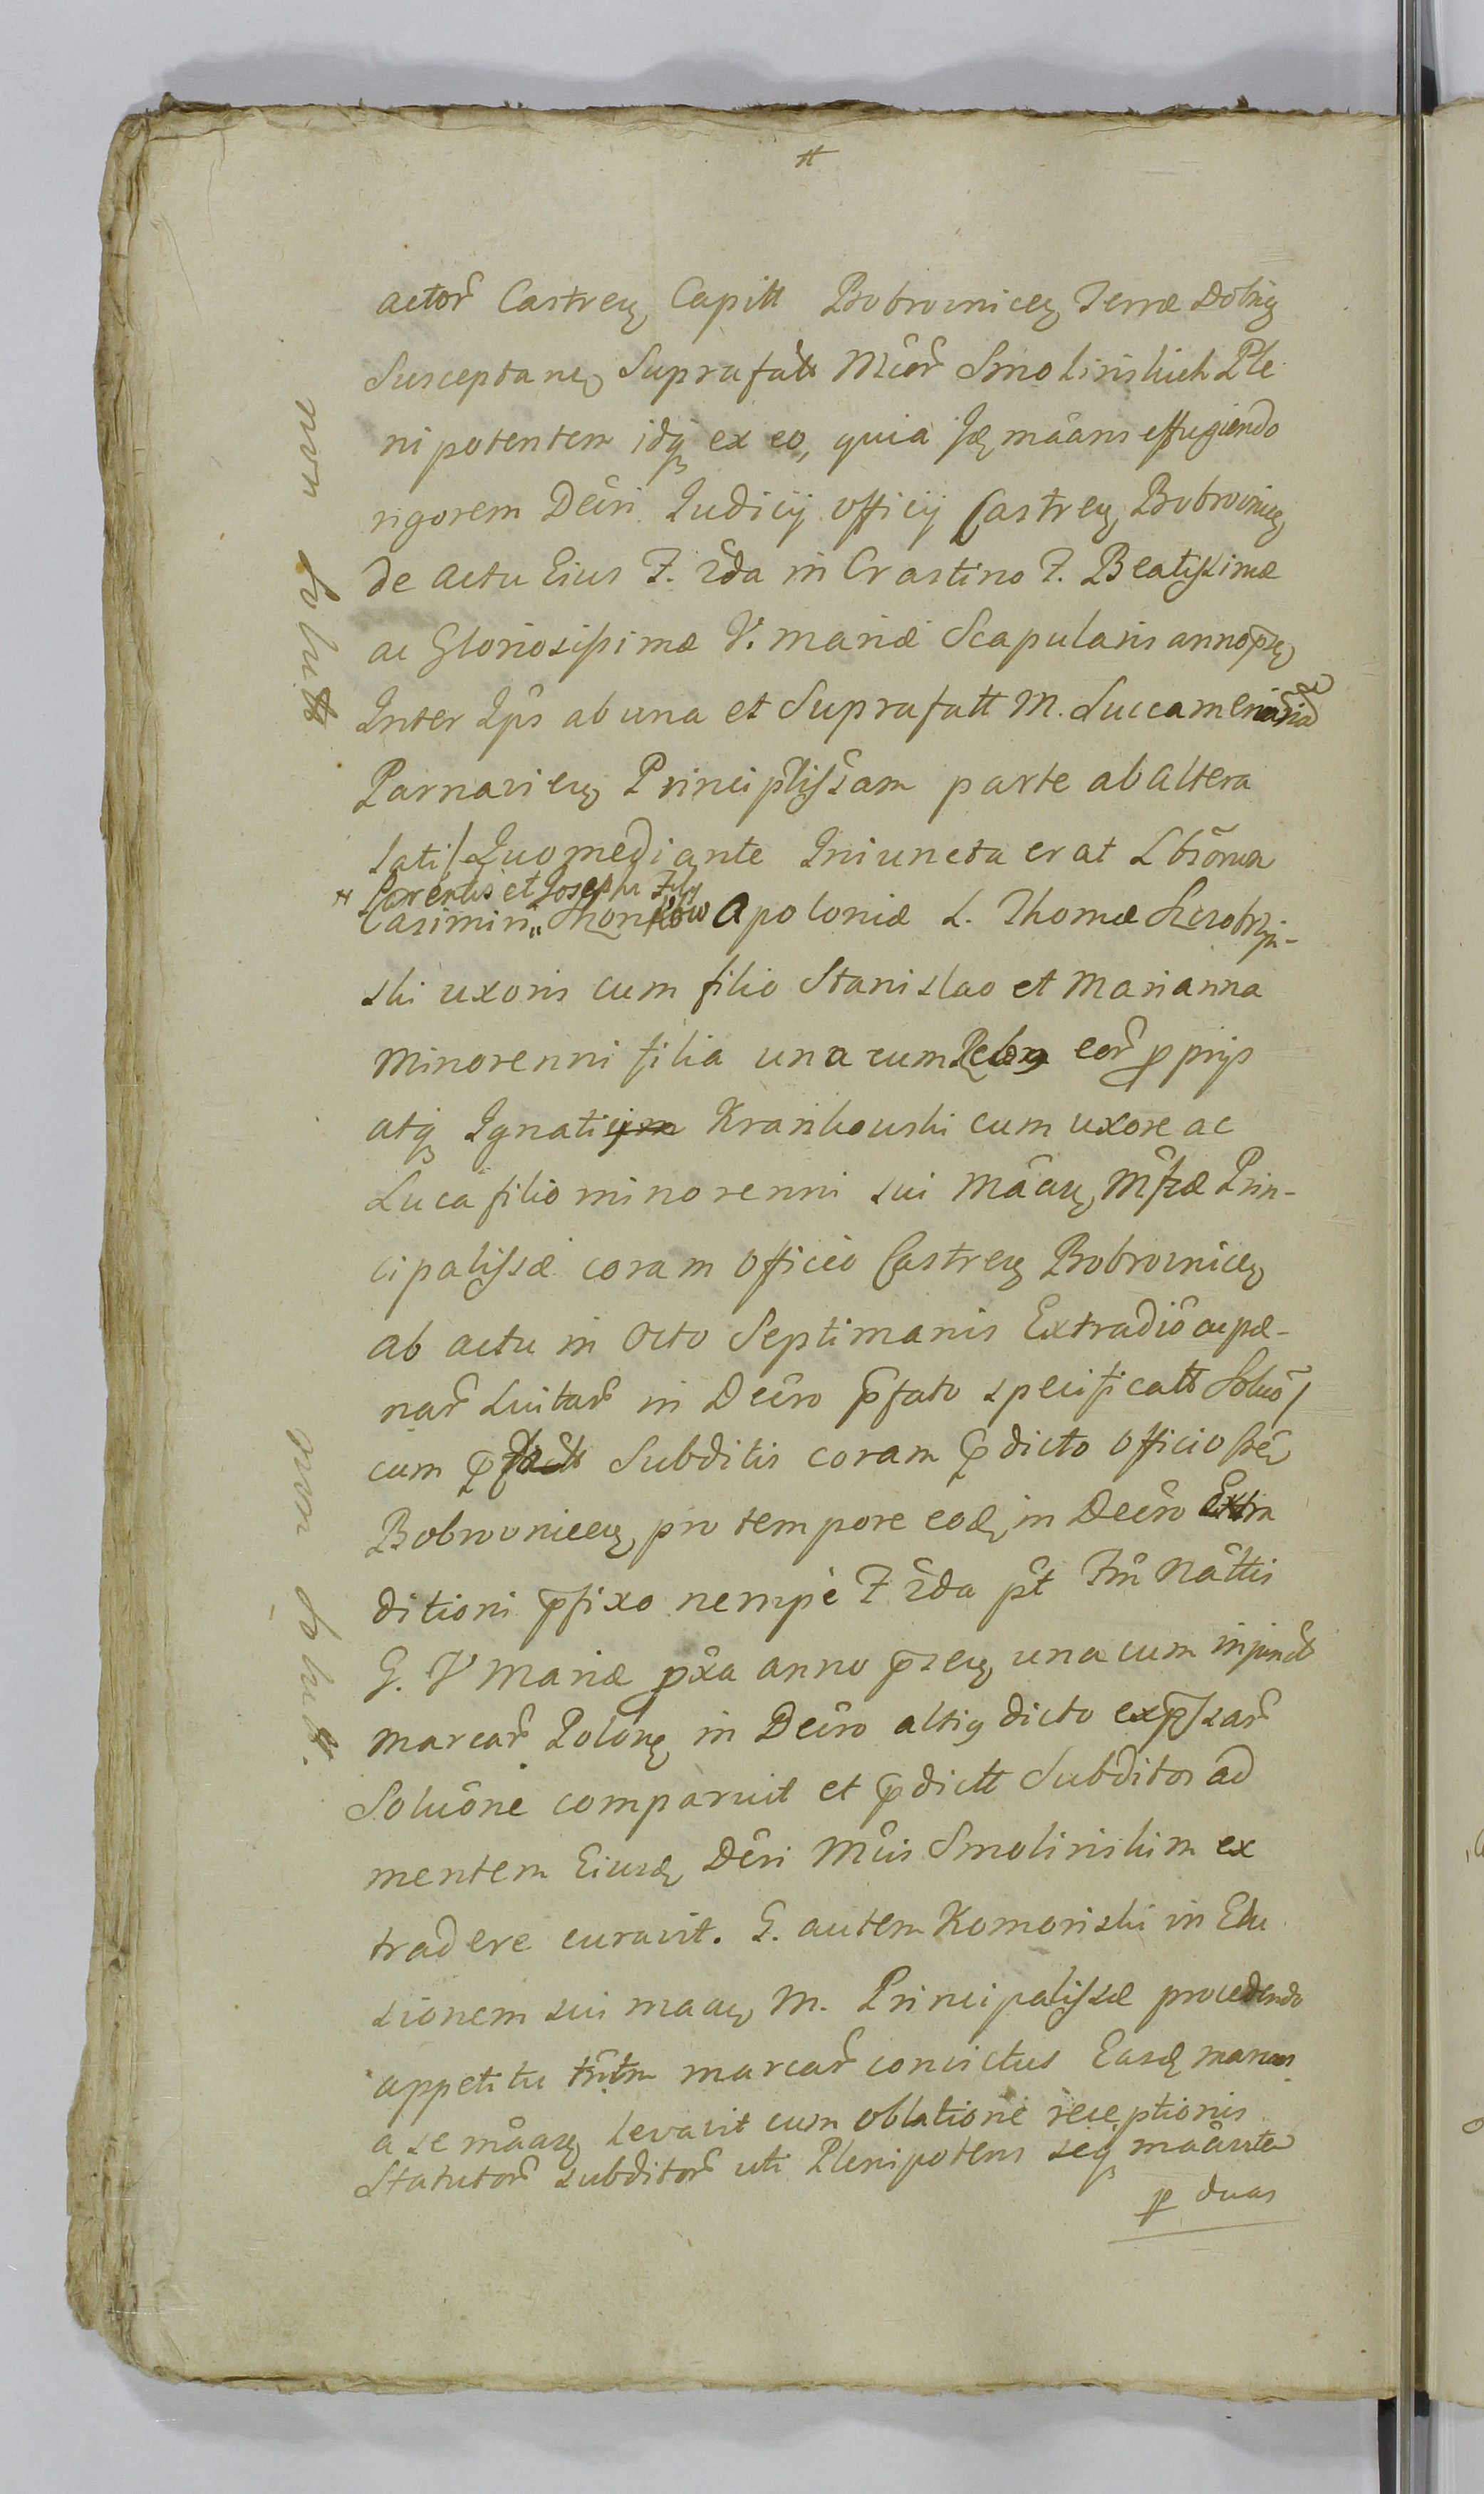 actor Castren Capitt Bobrovnicen Terræ Dobrin
Susceptanen Suprafatt Mcor Smolinskich Ple
nipotentem idq ex eo, quia Id mâans effugiendo
rigorem Decri Iudicij officij Castren Bobrovnicen
de actu Eius F. 2da in Crastino F. Beatissimæ
ac Gloriosissimæ V. mariæ Scapularis anno pse
Inter Ips ab una et Suprafatt M. Succameraria
Parnavien Principlissam parte ab altera
lati / Quo mediante Iniuncta erat
Parentis et Josephi Fily
Casimiri Apoloniæ L. Thomæ
ski uxoris cum filio Stanislao et Marianna
Minorenni filia una cum Rebg eor pprijs
atq Ignatij Krasikowski cum uxore ac
Luca filio minorenni sui Mâan Mfræ Prin-
cipalissæ coram Officio Castren Bobrovnicen
ab actu in Octo Septimanis Extradio ac pæ-
nar Luitar in Decro pfato specificatt Soluo /
cum Subditis coram pdicto Officio
Bobrovnicen pro tempore eod in Decro Extra
ditioni pfixo nempe F 2da pt Fm Nattis
G. V Mariæ pxa anno psen una cum injunct
marcar Polon in Decro altig dicto expssar
Soluône comparuit et pdictt Subditos ad
mentem Eiusd Decri Mcis Smolinskim ex
tradere curavit. G. autem Komoriski in Elu
sionem sui maan M. Principalissæ procedendo
appetitu marcar convictus Easd marcas
a se mâan levavit cum oblatione receptionis
Statutor subditor uti Plenipotens seq mââvite
p duas
non solutt
non solutt.